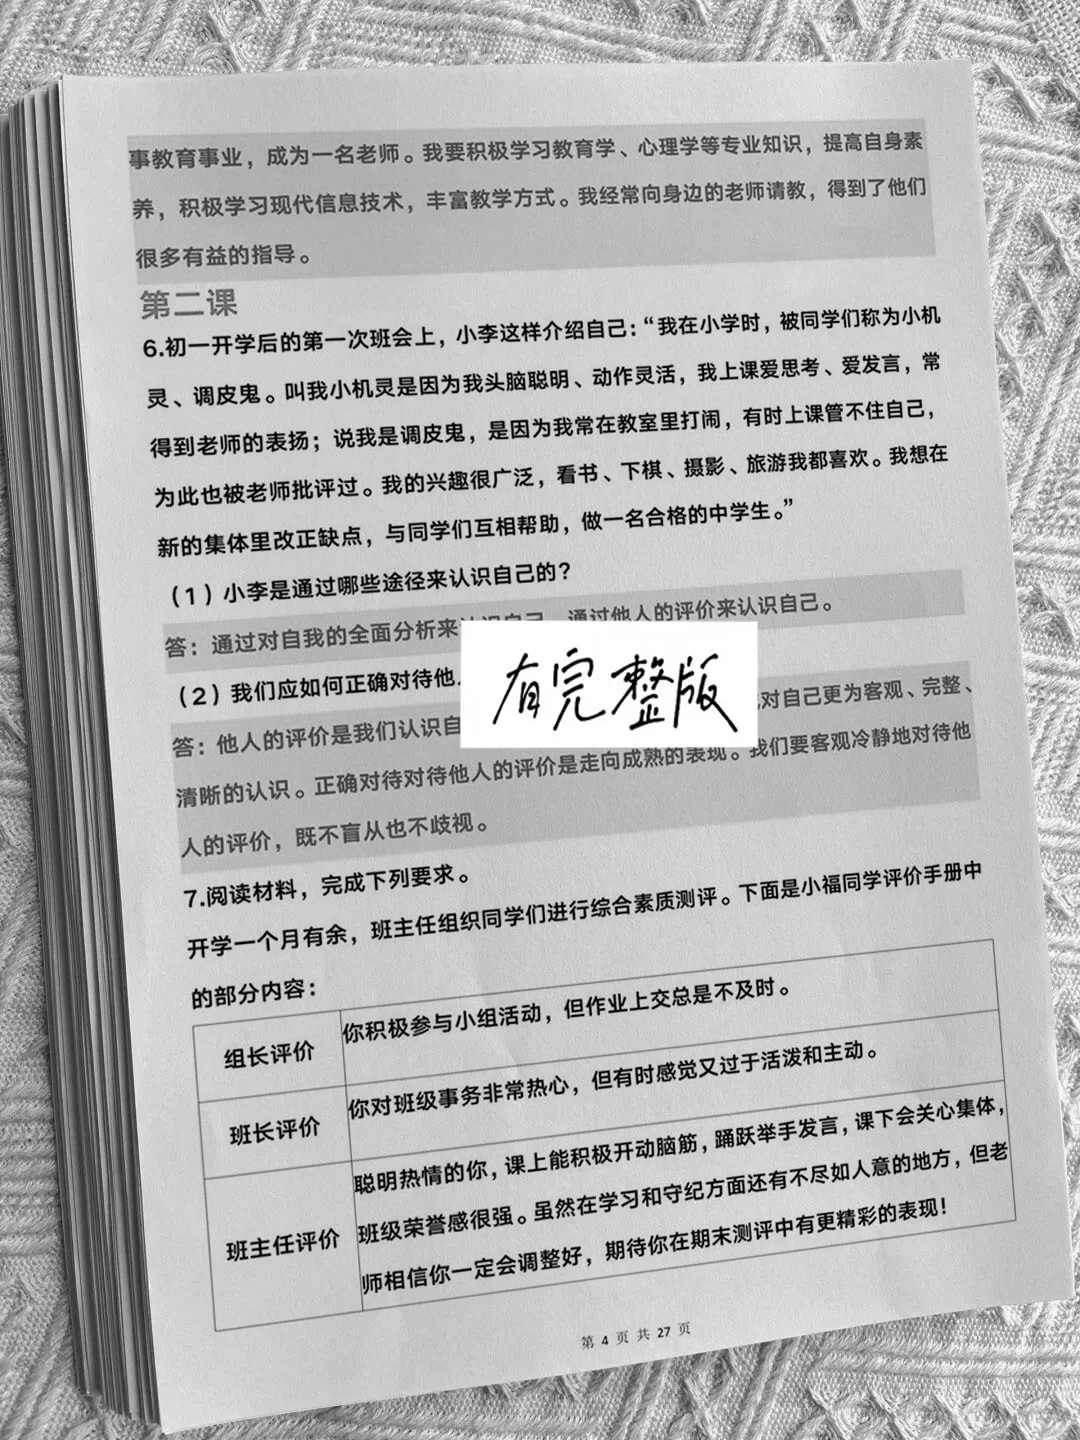 事教育事业，成为一名老师。我要积极学习教育学、心理学等专业知识，提高自身素
养，积极学习现代信息技术，丰富教学方式。我经常向身边的老师请教，得到了他们
很多有益的指导。
第二课
6.初一开学后的第一次班会上，小李这样介绍自己：“我在小学时，被同学们称为小机
灵、调皮鬼。叫我小机灵是因为我头脑聪明、动作灵活，我上课爱思考、爱发言，常
得到老师的表扬；说我是调皮鬼，是因为我常在教室里打闹，有时上课管不住自己，
为此也被老师批评过。我的兴趣很广泛，看书、下棋、摄影、旅游我都喜欢。我想在
新的集体里改正缺点，与同学们互相帮助，做一名合格的中学生。”
（1）小李是通过哪些途径来认识自己的？
答：通过对自我的全面分析来认识自己，通过他人的评价来认识自己。
（2）我们应如何正确对待他
有完整版
答：他人的评价是我们认识自 对自己更为客观、完整、
清晰的认识。正确对待对待他人的评价是走向成熟的表现。我们要客观冷静地对待他
人的评价，既不盲从也不歧视。
7.阅读材料，完成下列要求。
开学一个月有余，班主任组织同学们进行综合素质测评。下面是小福同学评价手册中
的部分内容：
组长评价 你积极参与小组活动，但作业上交总是不及时。
班长评价 你对班级事务非常热心，但有时感觉又过于活泼和主动。
聪明热情的你，课上能积极开动脑筋，踊跃举手发言，课下会关心集体，
班主任评价 班级荣誉感很强。虽然在学习和守纪方面还有不尽如人意的地方，但老
师相信你一定会调整好，期待你在期末测评中有更精彩的表现！
第 4 页 共 27 页